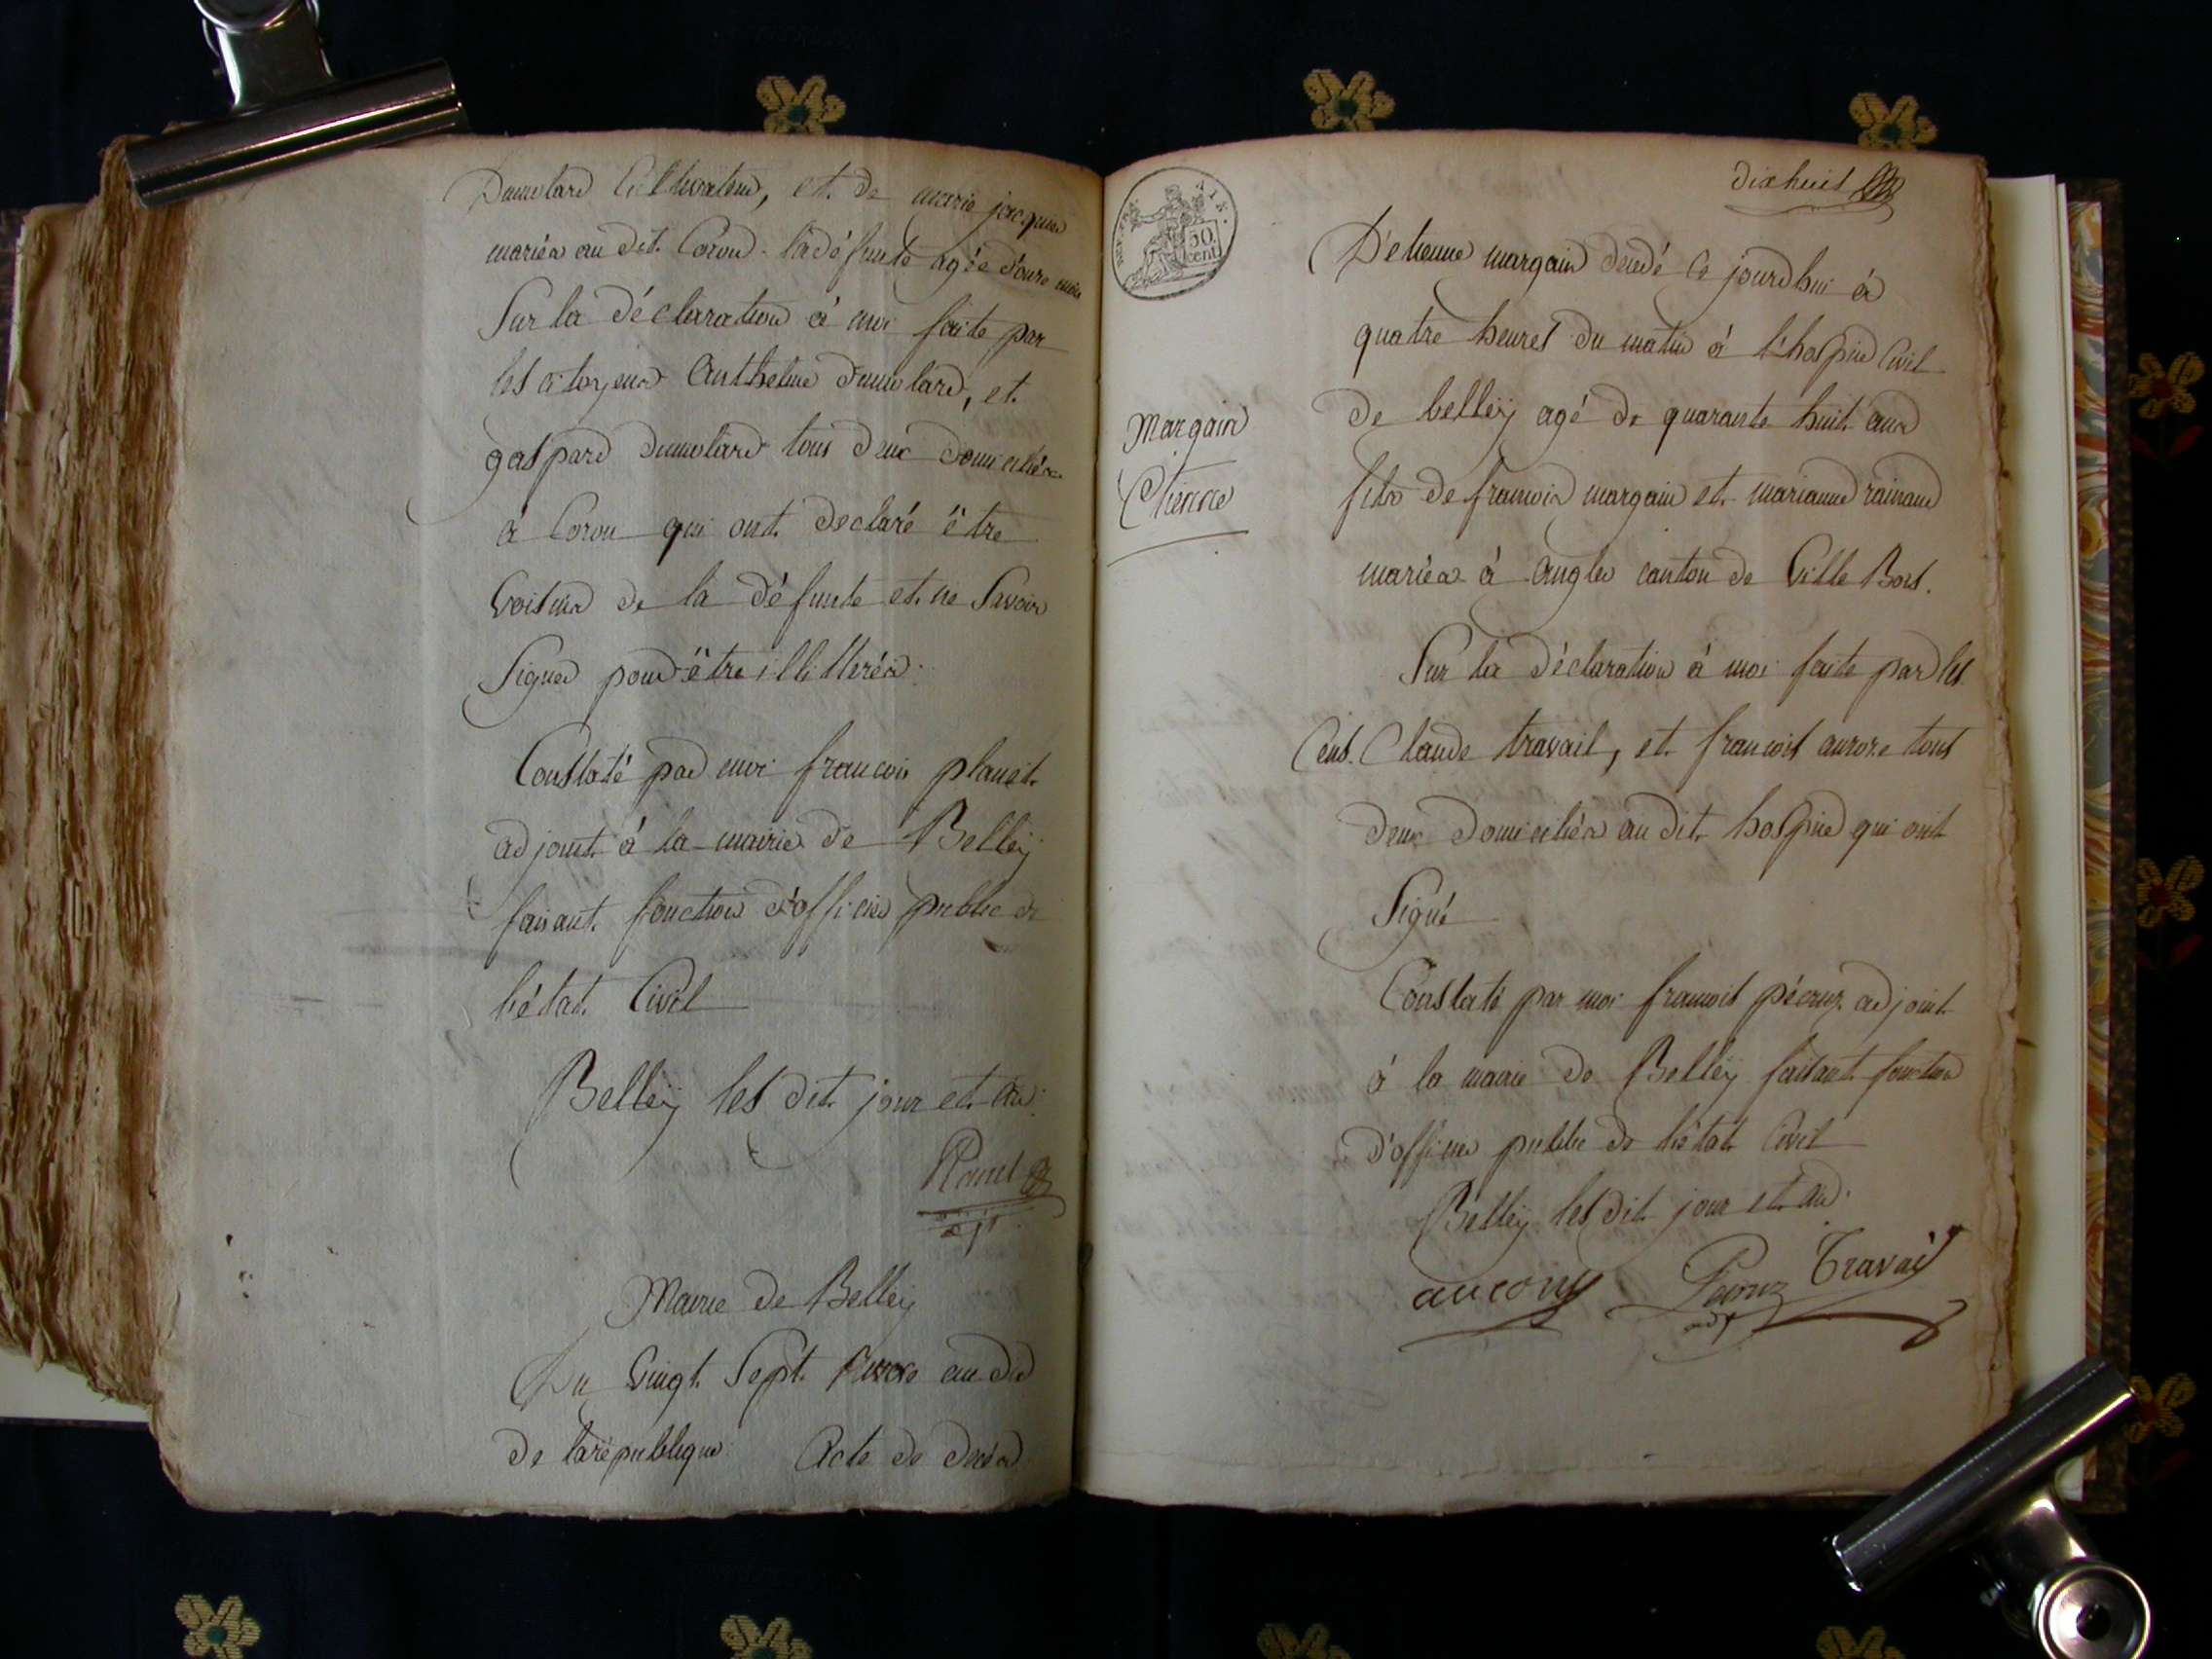 Dumolard Cultivateur, et de marie jacquier
mariés au dit Coron. la défunte agée d'onze mois
Sur la déclaration à moi faite par
les citoyens Anthelme dumolard, et
gaspard dumolard tous deux domiciliés
à Coron qui ont déclaré être
Voisins de la défunte et ne Savoir
Signer pour être illitterés.
Constaté par moi francois planet
adjoint à la mairie de Belleÿ
faisant fonction d'officier public de
l'état Civil
Belleÿ les dit jour et an.
adjt
Mairie de Belleÿ
Du Vingt Sept an dix
de la république Acte de decès
dixhuit
50
cent
Margain
Etienne
D'etienne margain decedé ce jourdhui à
quatre heures du matin à l'hospice Civil
de belleÿ agé de quarante huit ans
fils de francois margain et marianne rainaud
mariés à angles canton de Ville Bois.
Sur la déclaration à moi faite par les
Cens. Claude travail, et francois tous
deux domiciliés au dit hospice qui ont
Signé
Constaté par moi francois pécruz adjoint
à la mairie de Belleÿ faisant fonction
d'officier public de l'état Civil
Belleÿ les dit jour et an.
Travail
adjt